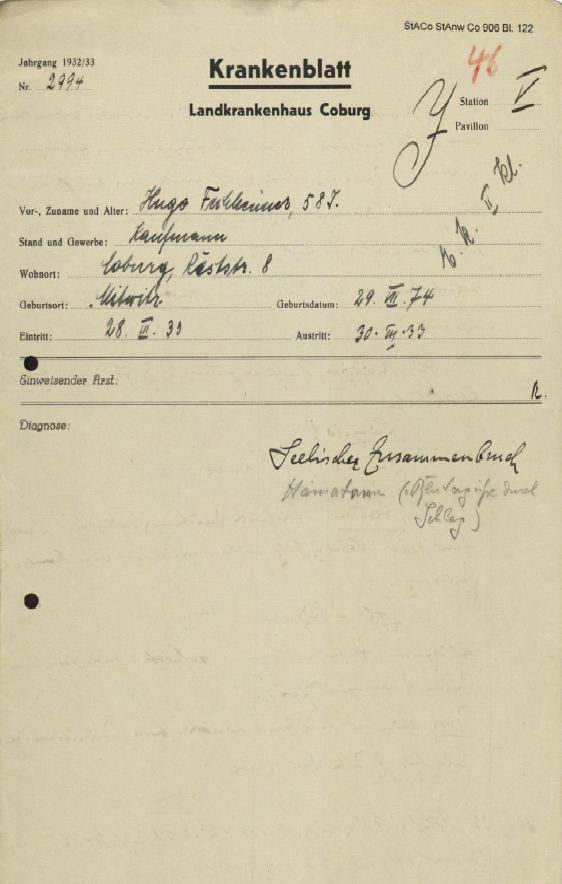 StACo StAnw Co 906 Bl. 122
46
Jahrgang 1932/33
Nr. 2994
Krankenblatt
Landkrankenhaus Coburg
Station V
Pavillon
II Kl.
Vor-, Zuname und Alter: Hugo 58 J.
Stand und Gewerbe: Kaufmann
Wohnort: Coburg, 8
Geburtsort: Mitwitz Geburtsdatum: 29. VII. 74
Eintritt: 28. III. 33 Austritt: 30. III. 33
Einweisender Arzt:
Diagnose:
Seelischer Zusammenbruch
Hämatome (Blutergüße durch
Schlag)